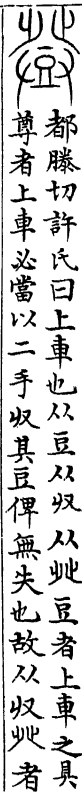 登
都滕切許氏曰上車也从豆从収从癶豆者上車之具
尊者上車必當以二手収其豆俾無失也故从収癶者